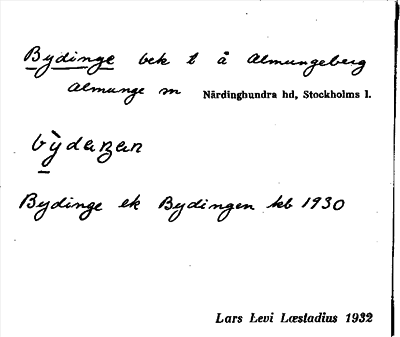 Bydinge bek t å Almungeberg
Almunge sn Närdinghundra hd, Stockholms l.
bỳdaŋan
Bydinge ek Bydingen kb 1930
Lars Levi Læstadius 1932